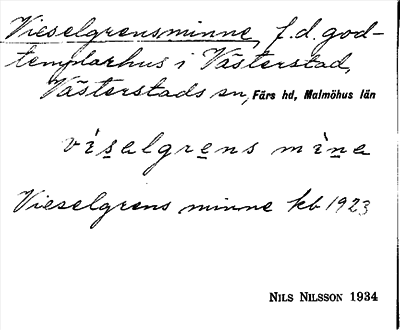 Vieselgrensminne, f.d. god-
templarhus i Västerstad,
Västerstads sn, Färs hd, Malmöhus län
vìsalgrens mìna
Vieselgrens minne kb 1923
NILS NILSSON 1934